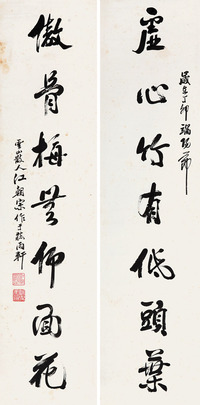 歲在丁卯端陽節
虛心竹有低頭葉
傲骨梅無仰面花
雲巖人江朝宗作于聽雨軒